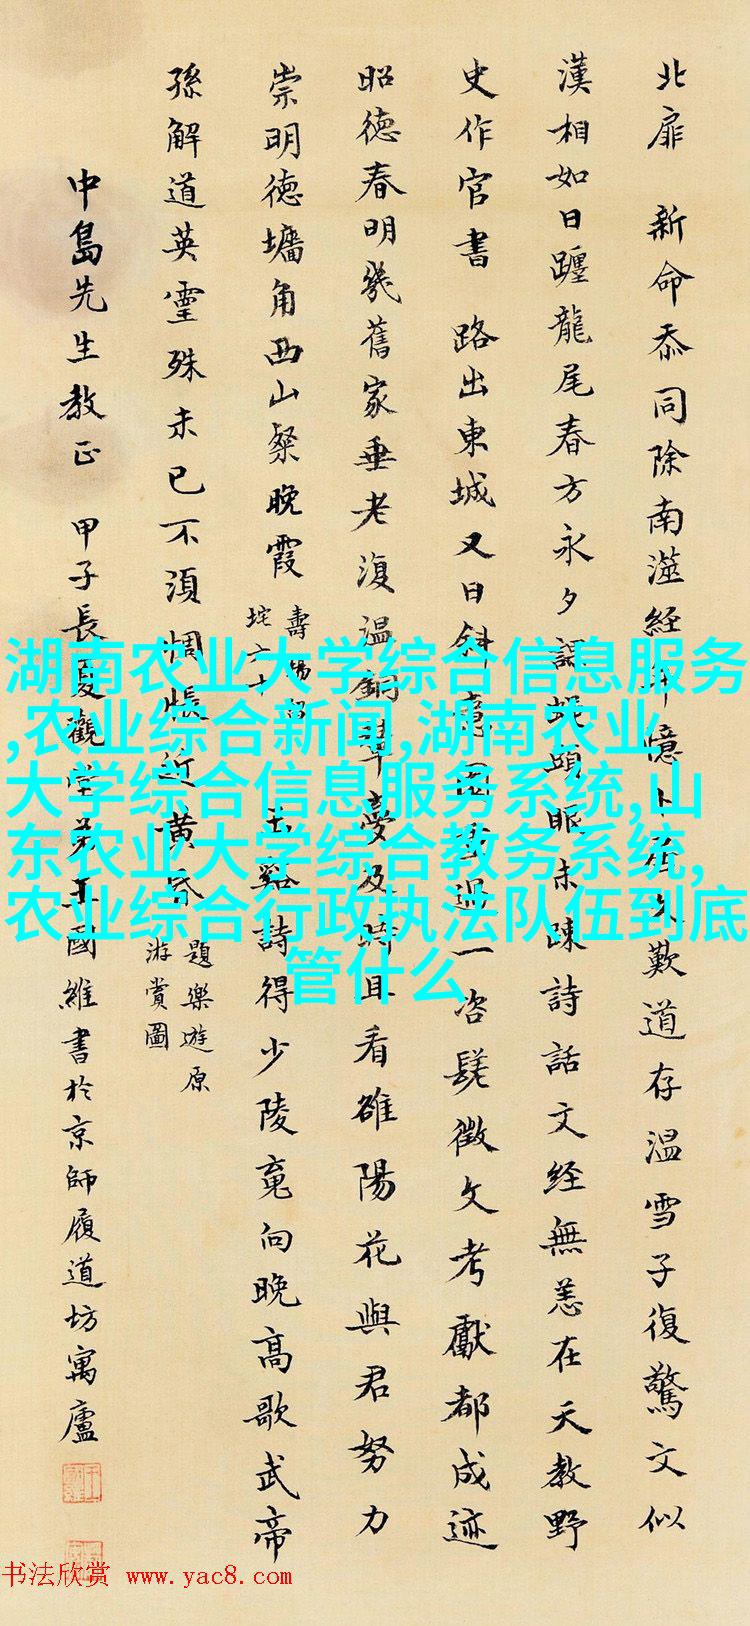 北扉 新命忝同除南澨經年憶卜居久歎道存温雪子復驚文似
漢相如日躔龍尾春方永夕頭眠未踈詩話文経無恙在天教野
史作官書 路出東城又日斜過一咨嗟徵文考獻都成迹
昭德春明幾舊家垂老復温銅輦夢及時且看雒陽花與君努力
崇明德墻角西山粲晚霞
壽楊留
垞六十
玉谿詩得少陵向晚高歌武帝
孫解道英靈殊未已不須惆悵近黄昏
題樂遊原
游賞圖
中島先生教正 甲子長夏觀堂弟王國維書於京師履道坊寓廬
湖南农业大学综合信息服务
,农业综合新闻,湖南农业
大学综合信息服务系统,山
东农业大学综合教务系统,
农业综合行政执法队伍到底
管什么
书法欣赏 www.yac8.com